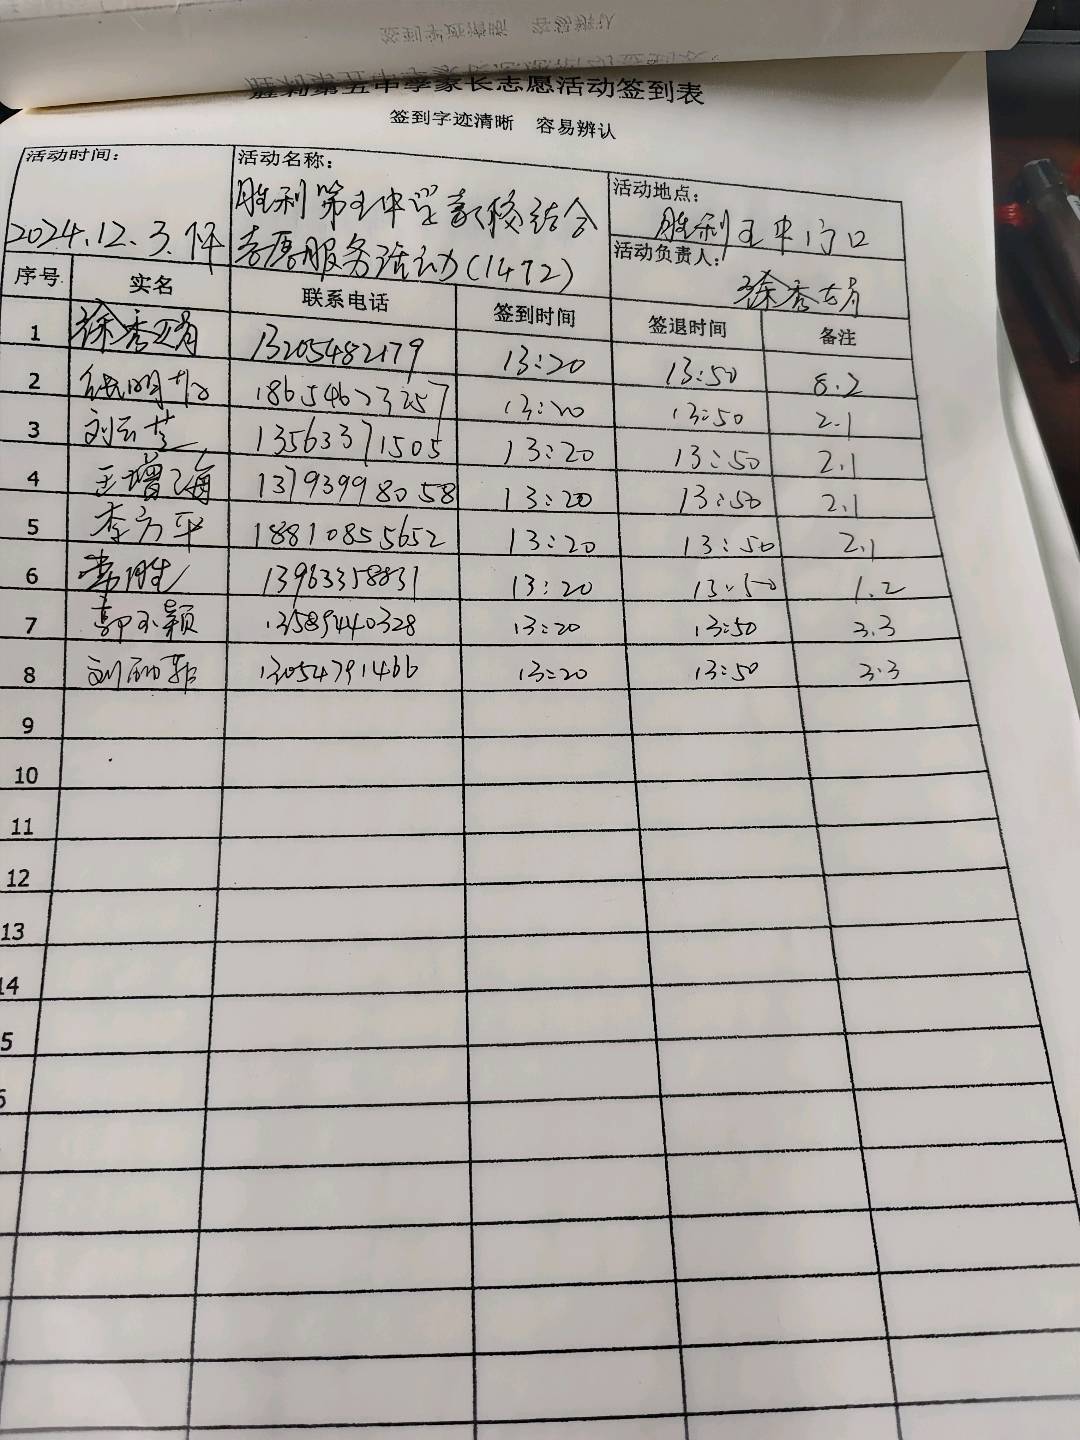 胜利第五中学家长志愿活动签到表
签到字迹清晰 容易辨认
活动时间: 2024.12.3.下午
活动名称: 胜利第五中学家校结合
志愿服务活动(1472)
活动地点: 胜利五中门口
活动负责人: 徐秀娟
序号 实名 联系电话 签到时间 签退时间 备注
1 徐秀娟 13205482179 13:20 13:50 8.2
2 13:20 13:50 2.1
3 刘云芝 13563371505 13:20 13:50 2.1
4 王增海 13793998058 13:20 13:50 2.1
5 李方平 18810855652 13:20 13:50 2.1
6 常胜 13963358831 13:20 13:50 1.2
7 郭玉颖 13589440328 13:20 13:50 3.3
8 13054791466 13:20 13:50 3.3
9
10
11
12
13
14
5
6